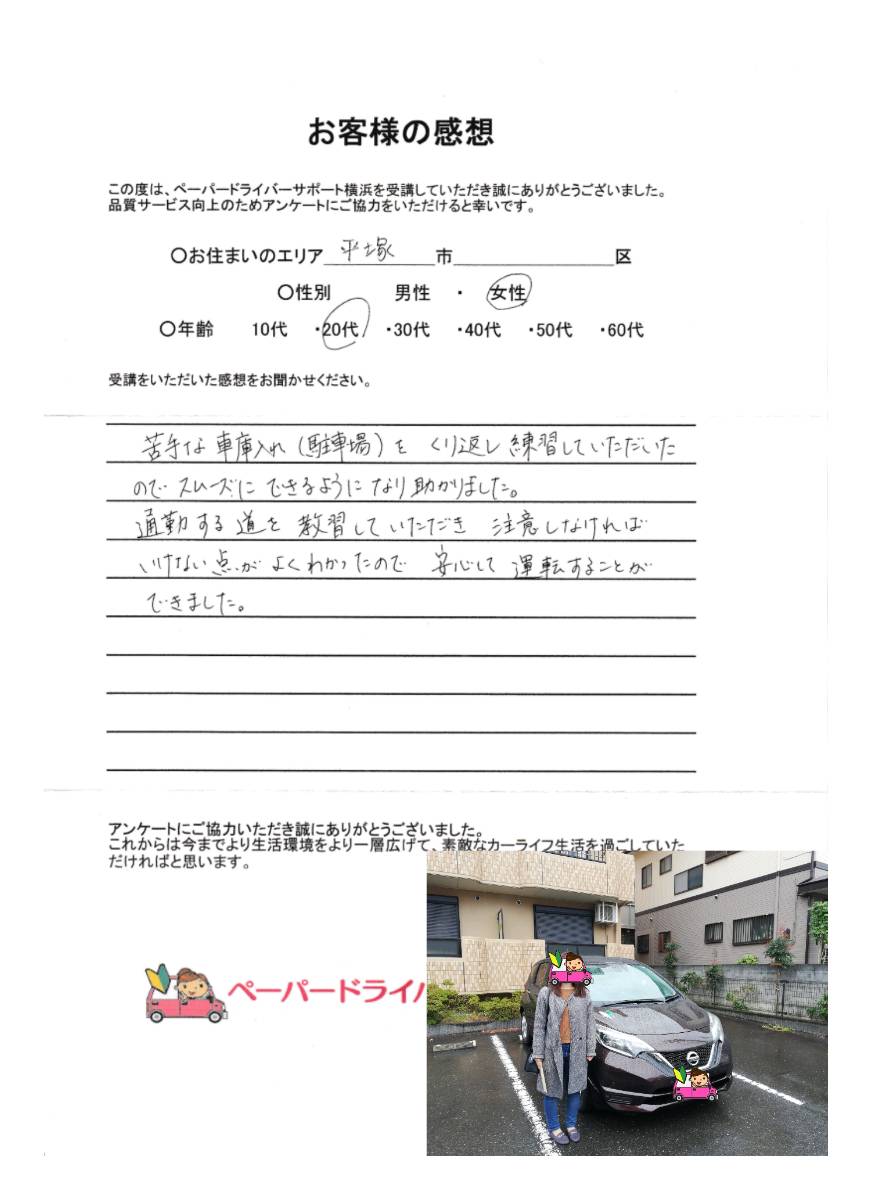 お客様の感想
この度は、ペーパードライバーサポート横浜を受講していただき誠にありがとうございました。
品質サービス向上のためアンケートにご協力をいただけると幸いです。
〇お住まいのエリア 平塚 市 区
〇性別 男性 ・ 女性
〇年齢 10代 ・20代 ・30代 ・40代 ・50代 ・60代
受講をいただいた感想をお聞かせください。
苦手な車庫入れ(駐車場)を くり返し練習していただいた
のでスムーズにできるようになり助かりました。
通勤する道を教習していただき 注意しなければ
いけない点がよくわかったので 安心して運転することが
できました。
アンケートにご協力いただき誠にありがとうございました。
これからは今までより生活環境をより一層広げて、素敵なカーライフ生活を過ごしていた
だければと思います。
ペーパードライバ